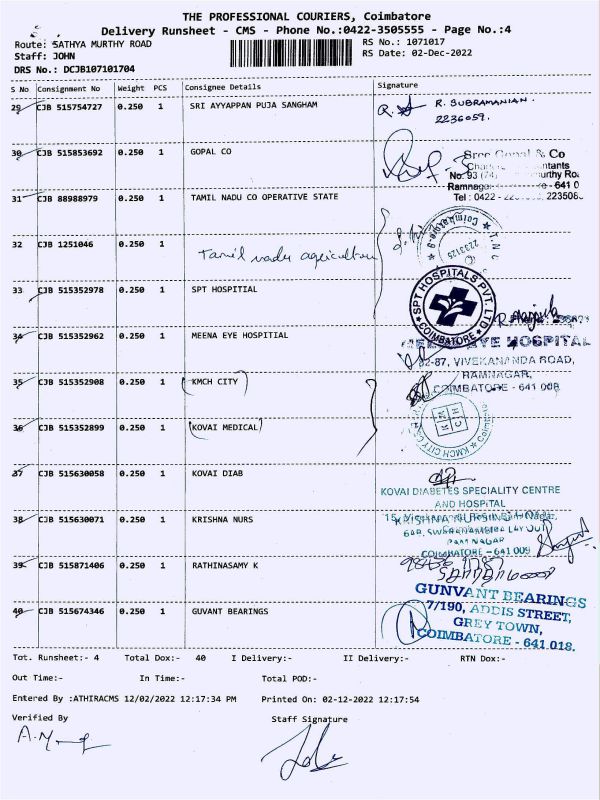 THE PROFESSIONAL COURIERS, Coimbatore
Delivery Runsheet - CMS - Phone No.:0422-3505555 - Page No.:4
Route: SATHYA MURTHY ROAD
RS No.: 1071017
Staff: JOHN
RS Date: 02-Dec-2022
DRS No.: DCJB107101704
S No Consignment No Weight PCS Consignee Details Signature
29 CJB 515754727 0.250 1 SRI AYYAPPAN PUJA SANGHAM R. SUBRAMANIAN.
2236059.
30 CJB 515853692 0.250 1 GOPAL CO
Sree Gopal & Co
No. 93 (74)
Tel : 0422 -
31 CJB 88988979 0.250 1 TAMIL NADU CO OPERATIVE STATE
32 CJB 1251046 0.250 1 Tamil nadu agriculture
Coimbatore-9
2233125
33 CJB 515352978 0.250 1 SPT HOSPITIAL
SPT HOSPITALS PVT. LTD
COIMBATORE
34 CJB 515352962 0.250 1 MEENA EYE HOSPITIAL
EYE HOSPITAL
82-87, VIVEKANANDA ROAD,
RAMNAGAR,
COIMBATORE - 641 009
35 CJB 515352908 0.250 1 KMCH CITY
36 CJB 515352899 0.250 1 KOVAI MEDICAL
KMCH CITY
Coimbatore
37 CJB 515630058 0.250 1 KOVAI DIAB
KOVAI DIABETES SPECIALITY CENTRE
AND HOSPITAL
38 CJB 515630071 0.250 1 KRISHNA NURS
KRISHNA NURSING
RAM NAGAR
COIMBATORE - 641 009
39 CJB 515871406 0.250 1 RATHINASAMY K
40 CJB 515674346 0.250 1 GUVANT BEARINGS
GUNVANT BEARINGS
7/190, ADDIS STREET,
GREY TOWN,
COIMBATORE - 641 018.
Tot. Runsheet:- 4 Total Dox:- 40 I Delivery:- II Delivery:- RTN Dox:-
Out Time:- In Time:- Total POD:-
Entered By :ATHIRACMS 12/02/2022 12:17:34 PM Printed On: 02-12-2022 12:17:54
Verified By Staff Signature